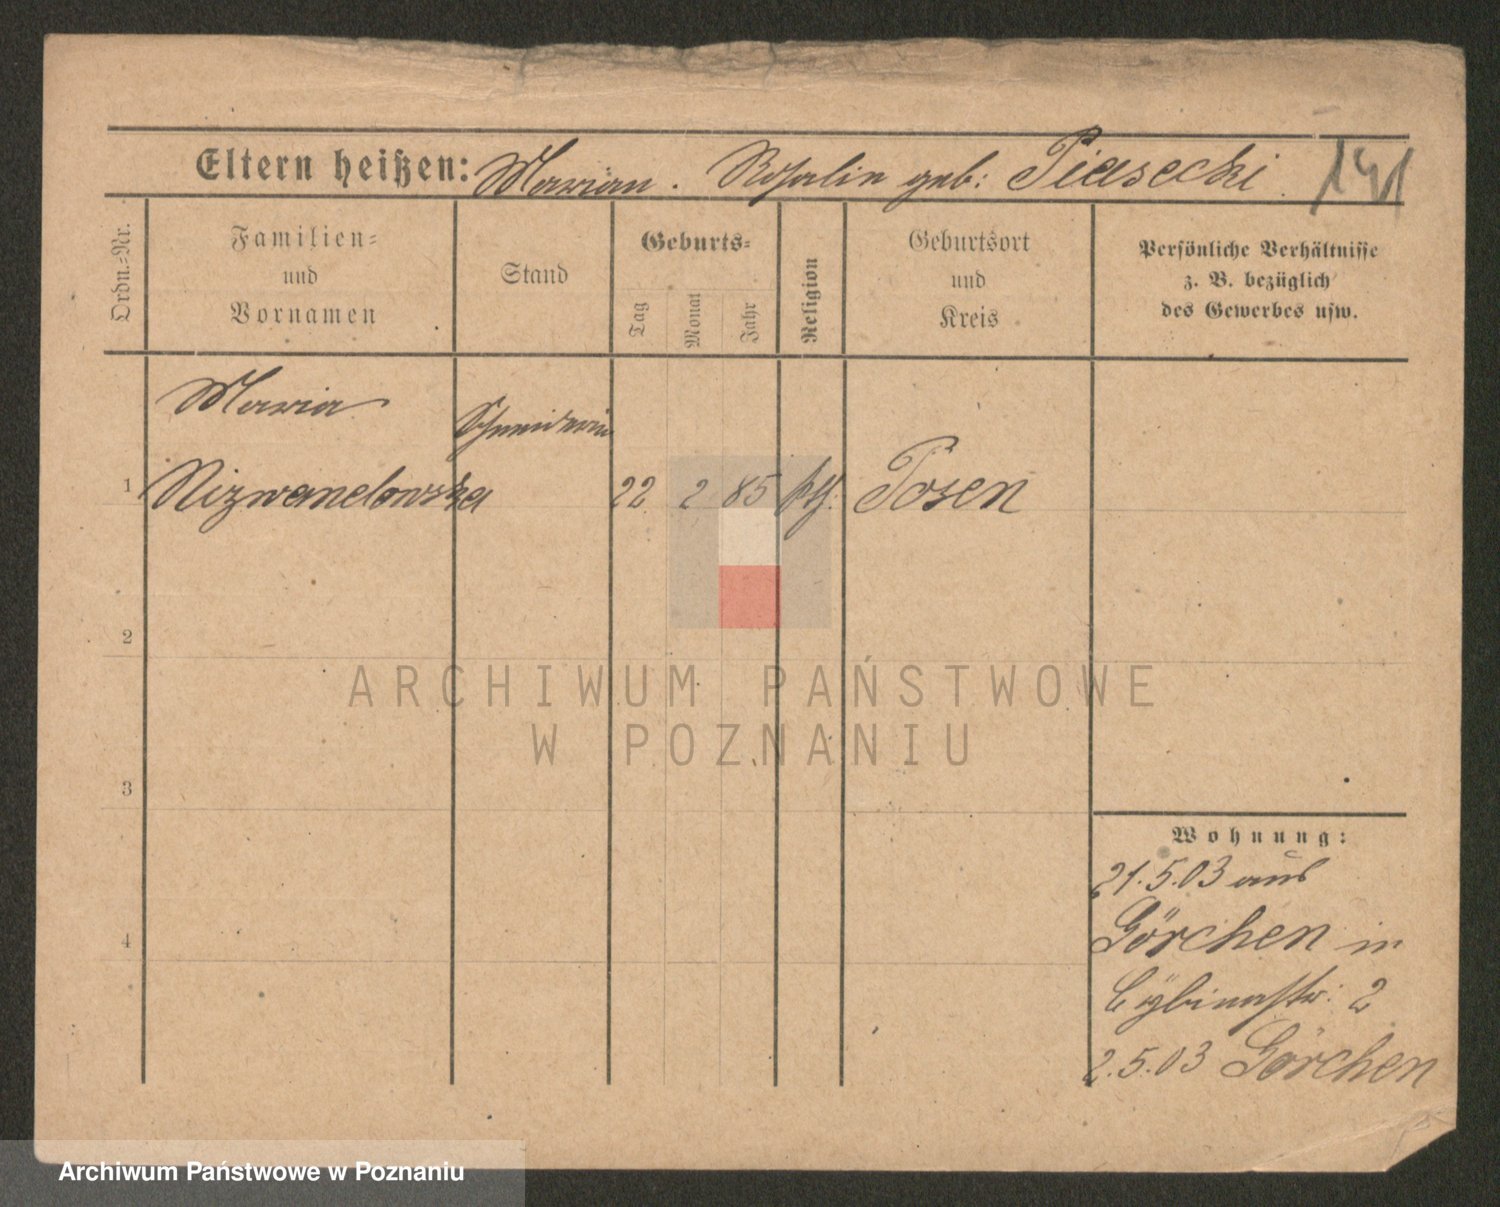 Eltern heißen: Marian. Rosalie geb: Piasecki 141
Ordn.-Nr.
Familien-
und
Vornamen
Stand
Geburts-
Tag
Monat
Jahr
Religion
Geburtsort
und
Kreis
Persönliche Verhältnisse
z. B. bezüglich
des Gewerbes usw.
Maria
Schneiderin
1 Nizwandowska 22 2 85 kth: Posen
2
3
4
Wohnung:
21.5.03 aus
Görchen in
Cybinastr: 2
2.5.03 Görchen
ARCHIWUM PAŃSTWOWE
W POZNANIU
Archiwum Państwowe w Poznaniu